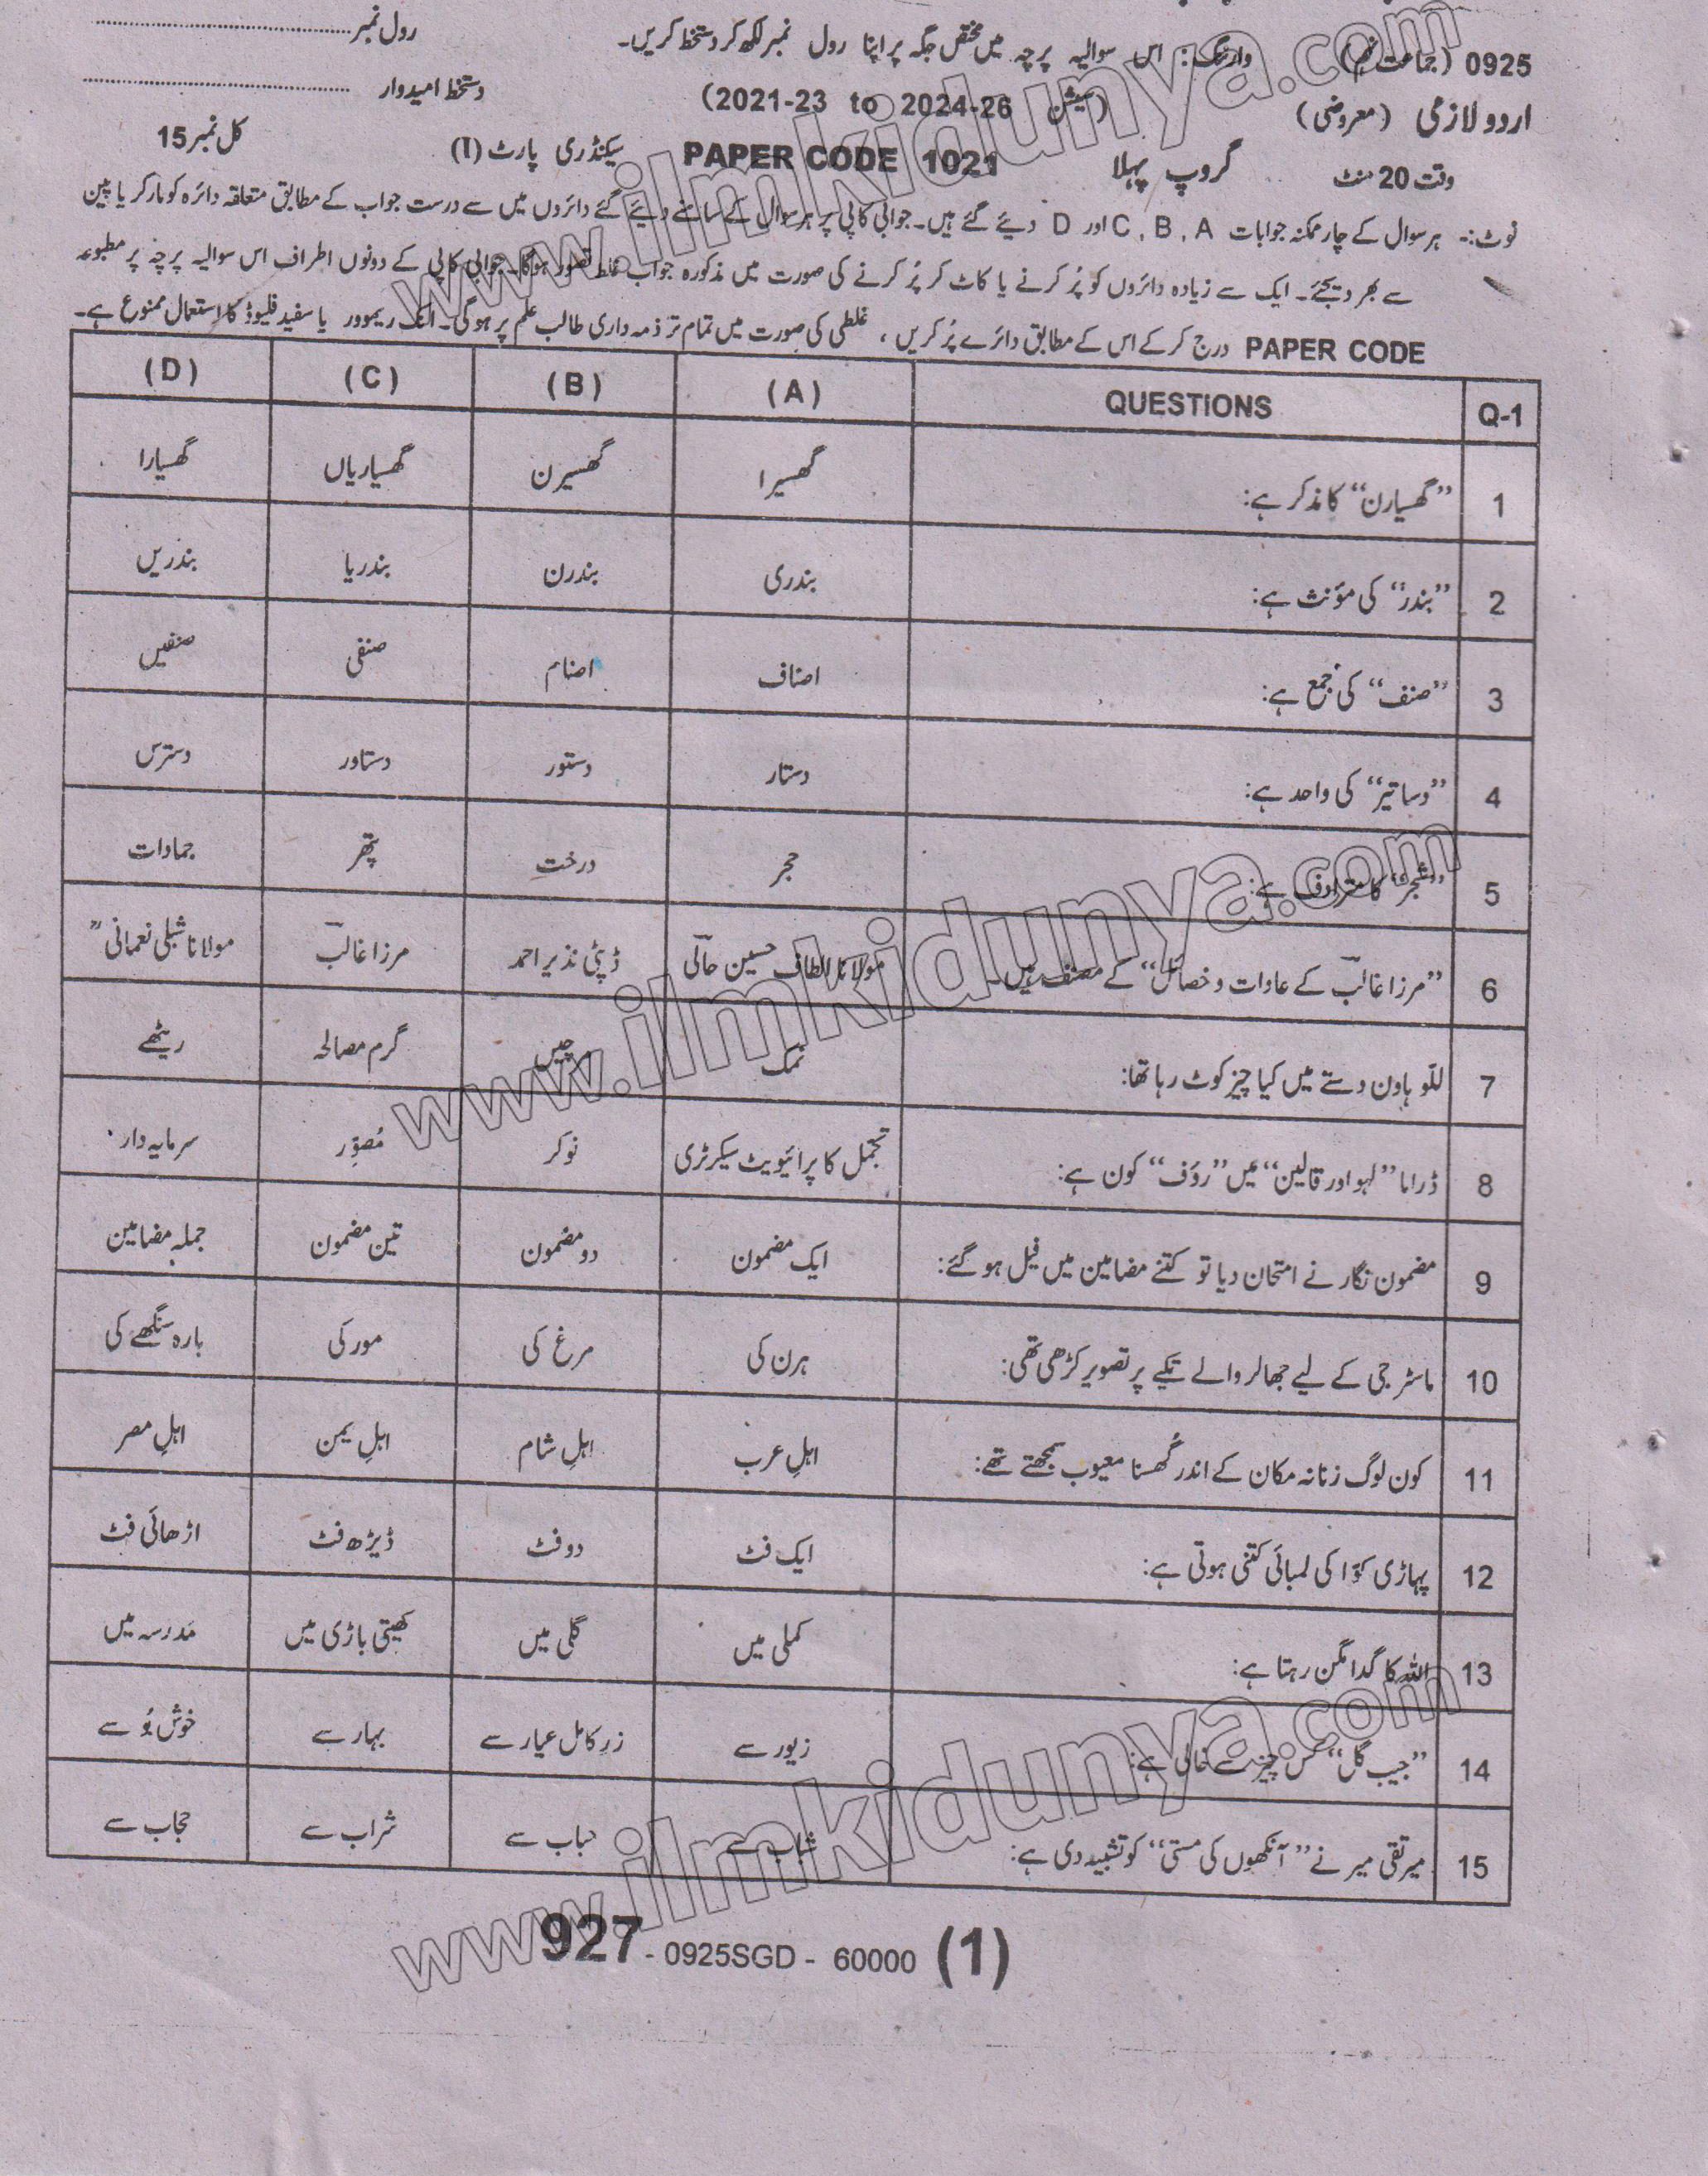 0925 (جماعت نہم) وارننگ: اس سوالیہ پرچہ میں مختص جگہ پر اپنا رول نمبر لکھ کر دستخط کریں۔ رول نمبر
اردو لازمی (معروضی) (سیشن 2021-23 to 2024-26) دستخط امیدوار
وقت 20 منٹ گروپ پہلا PAPER CODE 1021 سیکنڈری پارٹ (I) کل نمبر 15
نوٹ:۔ ہر سوال کے چار ممکنہ جوابات C , B , A اور D دیئے گئے ہیں۔ جوابی کاپی پر ہر سوال کے سامنے دیئے گئے دائروں میں سے درست جواب کے مطابق متعلقہ دائرہ کو مارکر یا پین
سے بھر دیجئے۔ ایک سے زیادہ دائروں کو پُر کرنے یا کاٹ کر پُر کرنے کی صورت میں مذکورہ جواب غلط تصور ہوگا۔ جوابی کاپی کے دونوں اطراف اس سوالیہ پرچہ پر مطبوعہ
PAPER CODE درج کر کے اس کے مطابق دائرے پُر کریں ، غلطی کی صورت میں تمام تر ذمہ داری طالب علم پر ہوگی۔ انک ریموور یا سفید فلیوڈ کا استعمال ممنوع ہے۔
Q-1 QUESTIONS (A) (B) (C) (D)
1 ”گھسیارن“ کا مذکر ہے: گھسیرا گھسیرن گھسیاریاں گھسیارا
2 ”بندر“ کی مؤنث ہے: بندری بندرن بندریا بندریں
3 ”صنف“ کی جمع ہے: اصناف اصنام صنفی صنفیں
4 ”دساتیر“ کی واحد ہے: دستار دستور دستاور دسترس
5 ”شجر“ کا مترادف ہے: حجر درخت پتھر جمادات
6 ”مرزا غالبؔ کے عادات و خصائل“ کے مصنف ہیں۔ مولانا الطاف حسین حالیؔ ڈپٹی نذیر احمد مرزا غالبؔ مولانا شبلی نعمانیؒ
7 للّو ہاون دستے میں کیا چیز کوٹ رہا تھا: نمک مرچیں گرم مصالحہ ریٹھے
8 ڈراما ”لہو اور قالین“ میں ”رؤف“ کون ہے: تجمل کا پرائیویٹ سیکرٹری نوکر مُصوِّر سرمایہ دار
9 مضمون نگار نے امتحان دیا تو کتنے مضامین میں فیل ہو گئے: ایک مضمون دو مضمون تین مضمون جملہ مضامین
10 ماسٹر جی کے لیے جھالر والے تکیے پر تصویر کڑھی تھی: ہرن کی مرغ کی مور کی بارہ سنگھے کی
11 کون لوگ زنانہ مکان کے اندر گُھسنا معیوب سمجھتے تھے: اہلِ عرب اہلِ شام اہلِ یمن اہلِ مصر
12 پہاڑی کوّا کی لمبائی کتنی ہوتی ہے: ایک فٹ دو فٹ ڈیڑھ فٹ اڑھائی فٹ
13 اللہ کا گدا مگن رہتا ہے: کملی میں گلی میں کھیتی باڑی میں مدرسہ میں
14 ”جیب گل“ کس چیز سے خالی ہے: زیور سے زر کامل عیار سے بہار سے خوش بُو سے
15 میر تقی میر نے ”آنکھوں کی مستی“ کو تشبیہ دی ہے: شباب سے حباب سے شراب سے حجاب سے
927 - 0925SGD - 60000 (1)
www.ilmkidunya.com
www.ilmkidunya.com
www.ilmkidunya.com